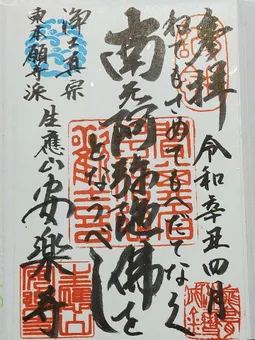 奉拝
令和辛丑四月
行すもさめてもへだてなく
南无阿弥陀佛を
となうべし
生應山安楽寺
浄土真宗
東本願寺派